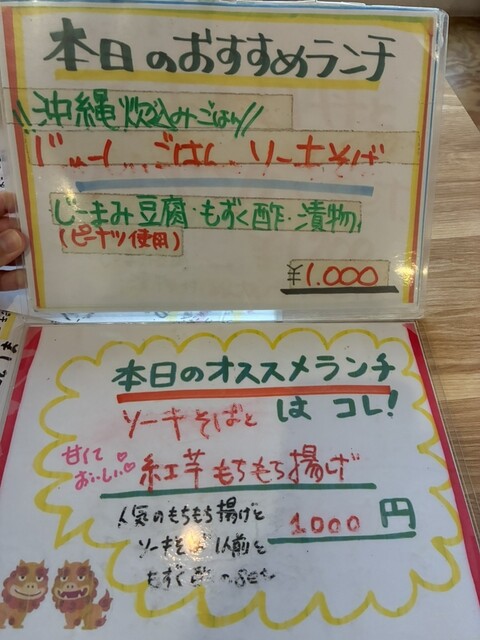 本日のおすすめランチ
!!沖縄炊込みごはん!!
じゅーしーごはん ソーキそば
じーまみ豆腐・もずく酢・漬物
(ピーナツ使用)
¥1.000
本日のオススメランチ
は コレ!
ソーキそばと
甘くて
おいしい♡
紅芋もちもち揚げ
人気のもちもち揚げと
1000 円
ソーキそば1人前と
もずく酢